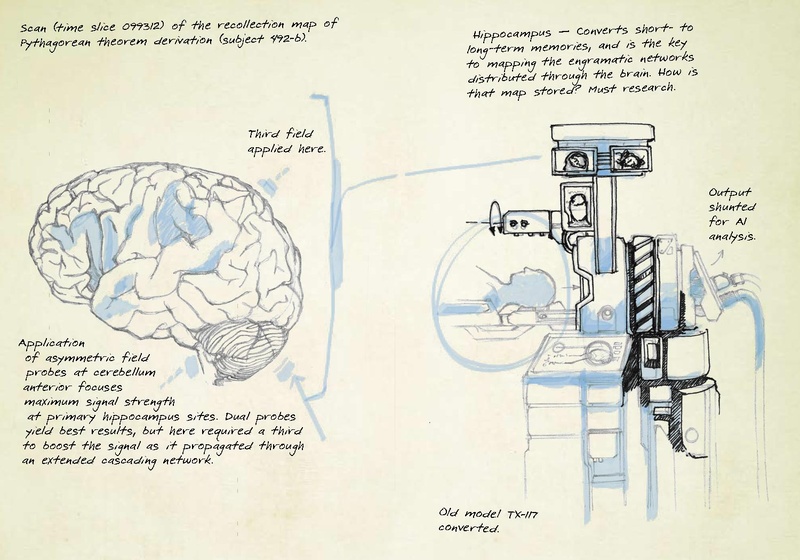 Scan (time slice 099312) of the recollection map of
Pythagorean theorem derivation (subject 492-b).
Hippocampus — Converts short- to
long-term memories, and is the key
to mapping the engramatic networks
distributed through the brain. How is
that map stored? Must research.
Third field
applied here.
Output
shunted
for AI
analysis.
Application
of asymmetric field
probes at cerebellum
anterior focuses
maximum signal strength
at primary hippocampus sites. Dual probes
yield best results, but here required a third
to boost the signal as it propagated through
an extended cascading network.
Old model TX-117
converted.